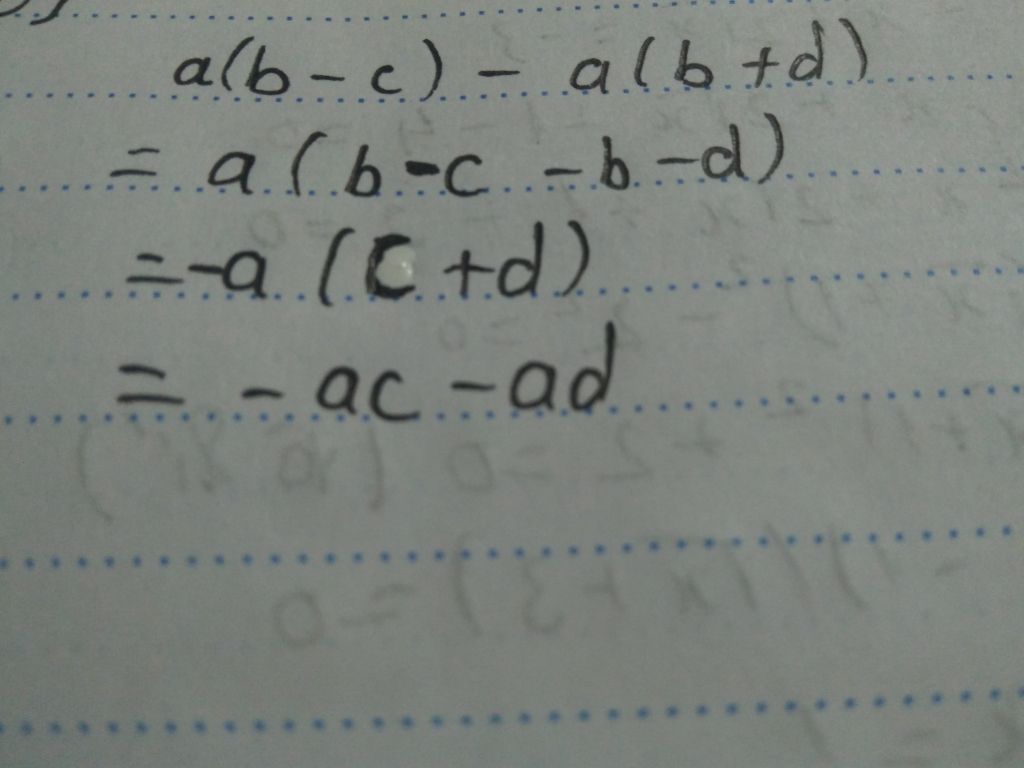 a(b - c) - a(b + d)
= a(b - c - b - d)
= -a(c + d)
= -ac - ad